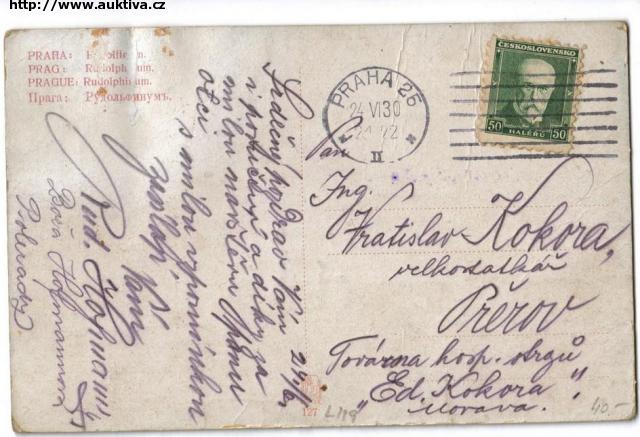 http://www.auktiva.cz
PRAHA: Rudolfinum.
PRAG: Rudolphinum.
PRAGUE: Rudolphinum.
Прага: Рудольфинумъ.
PRAHA 25
24 VI 30
II
ČESKOSLOVENSKO
50 HALÉŘŮ 50
24/6
Srdečný pozdrav Vám
i poručení a díky za
milou návštěvu
otci
s milou vzpomínkou
zasílají Vám
Rud. Hofmann
Hofmannová
Pan
Ing.
Vratislav Kokora,
velkostatkář
Přerov
Továrna hosp. strojů
"Ed. Kokora".
Morava.
127
L119
40.-